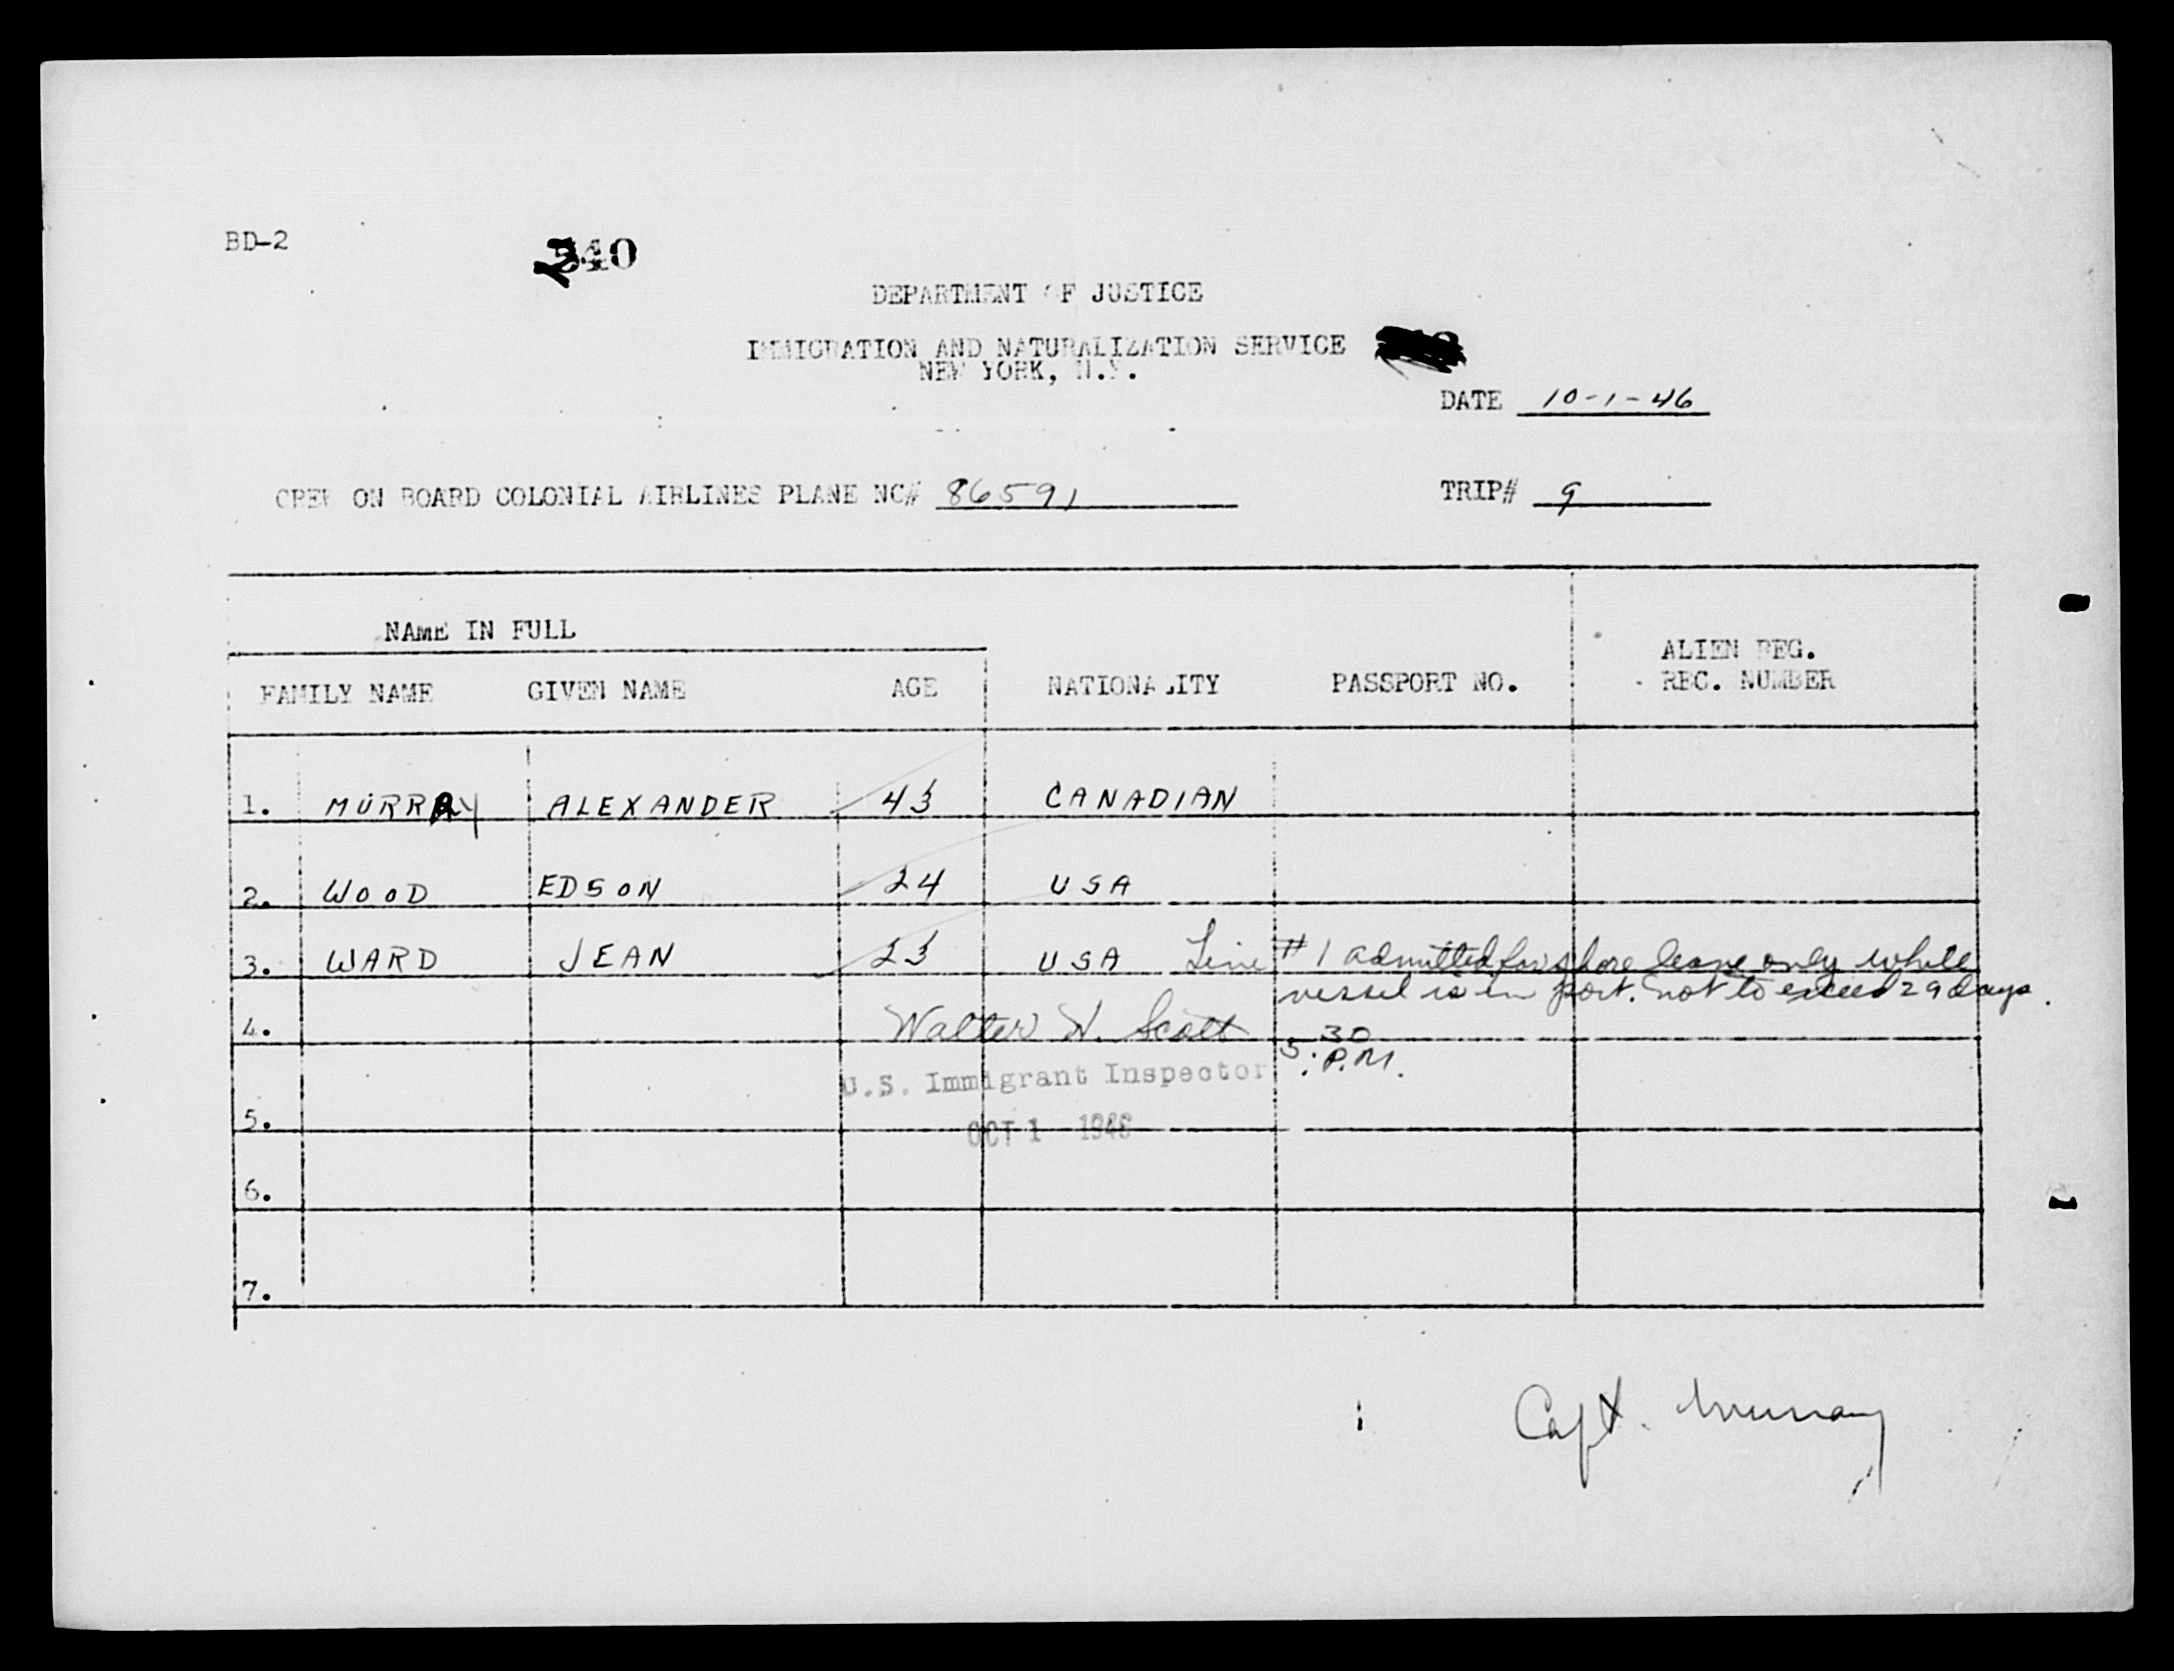 BD-2
340
DEPARTMENT OF JUSTICE
IMMIGRATION AND NATURALIZATION SERVICE
NEW YORK, N.Y.
DATE 10-1-46
CREW ON BOARD COLONIAL AIRLINES PLANE NC# 86591 TRIP# 9
NAME IN FULL
FAMILY NAME GIVEN NAME AGE NATIONALITY PASSPORT NO. ALIEN REG. REC. NUMBER
1. MURRAY ALEXANDER 43 CANADIAN
2. WOOD EDSON 24 USA
3. WARD JEAN 23 USA
Line #1 admitted for shore leave only while
vessel is in port. not to exceed 29 days.
4. Walter H. Scott 5:30 P.M.
U.S. Immigrant Inspector
5. OCT 1 1946
6.
7.
Capt. Murray